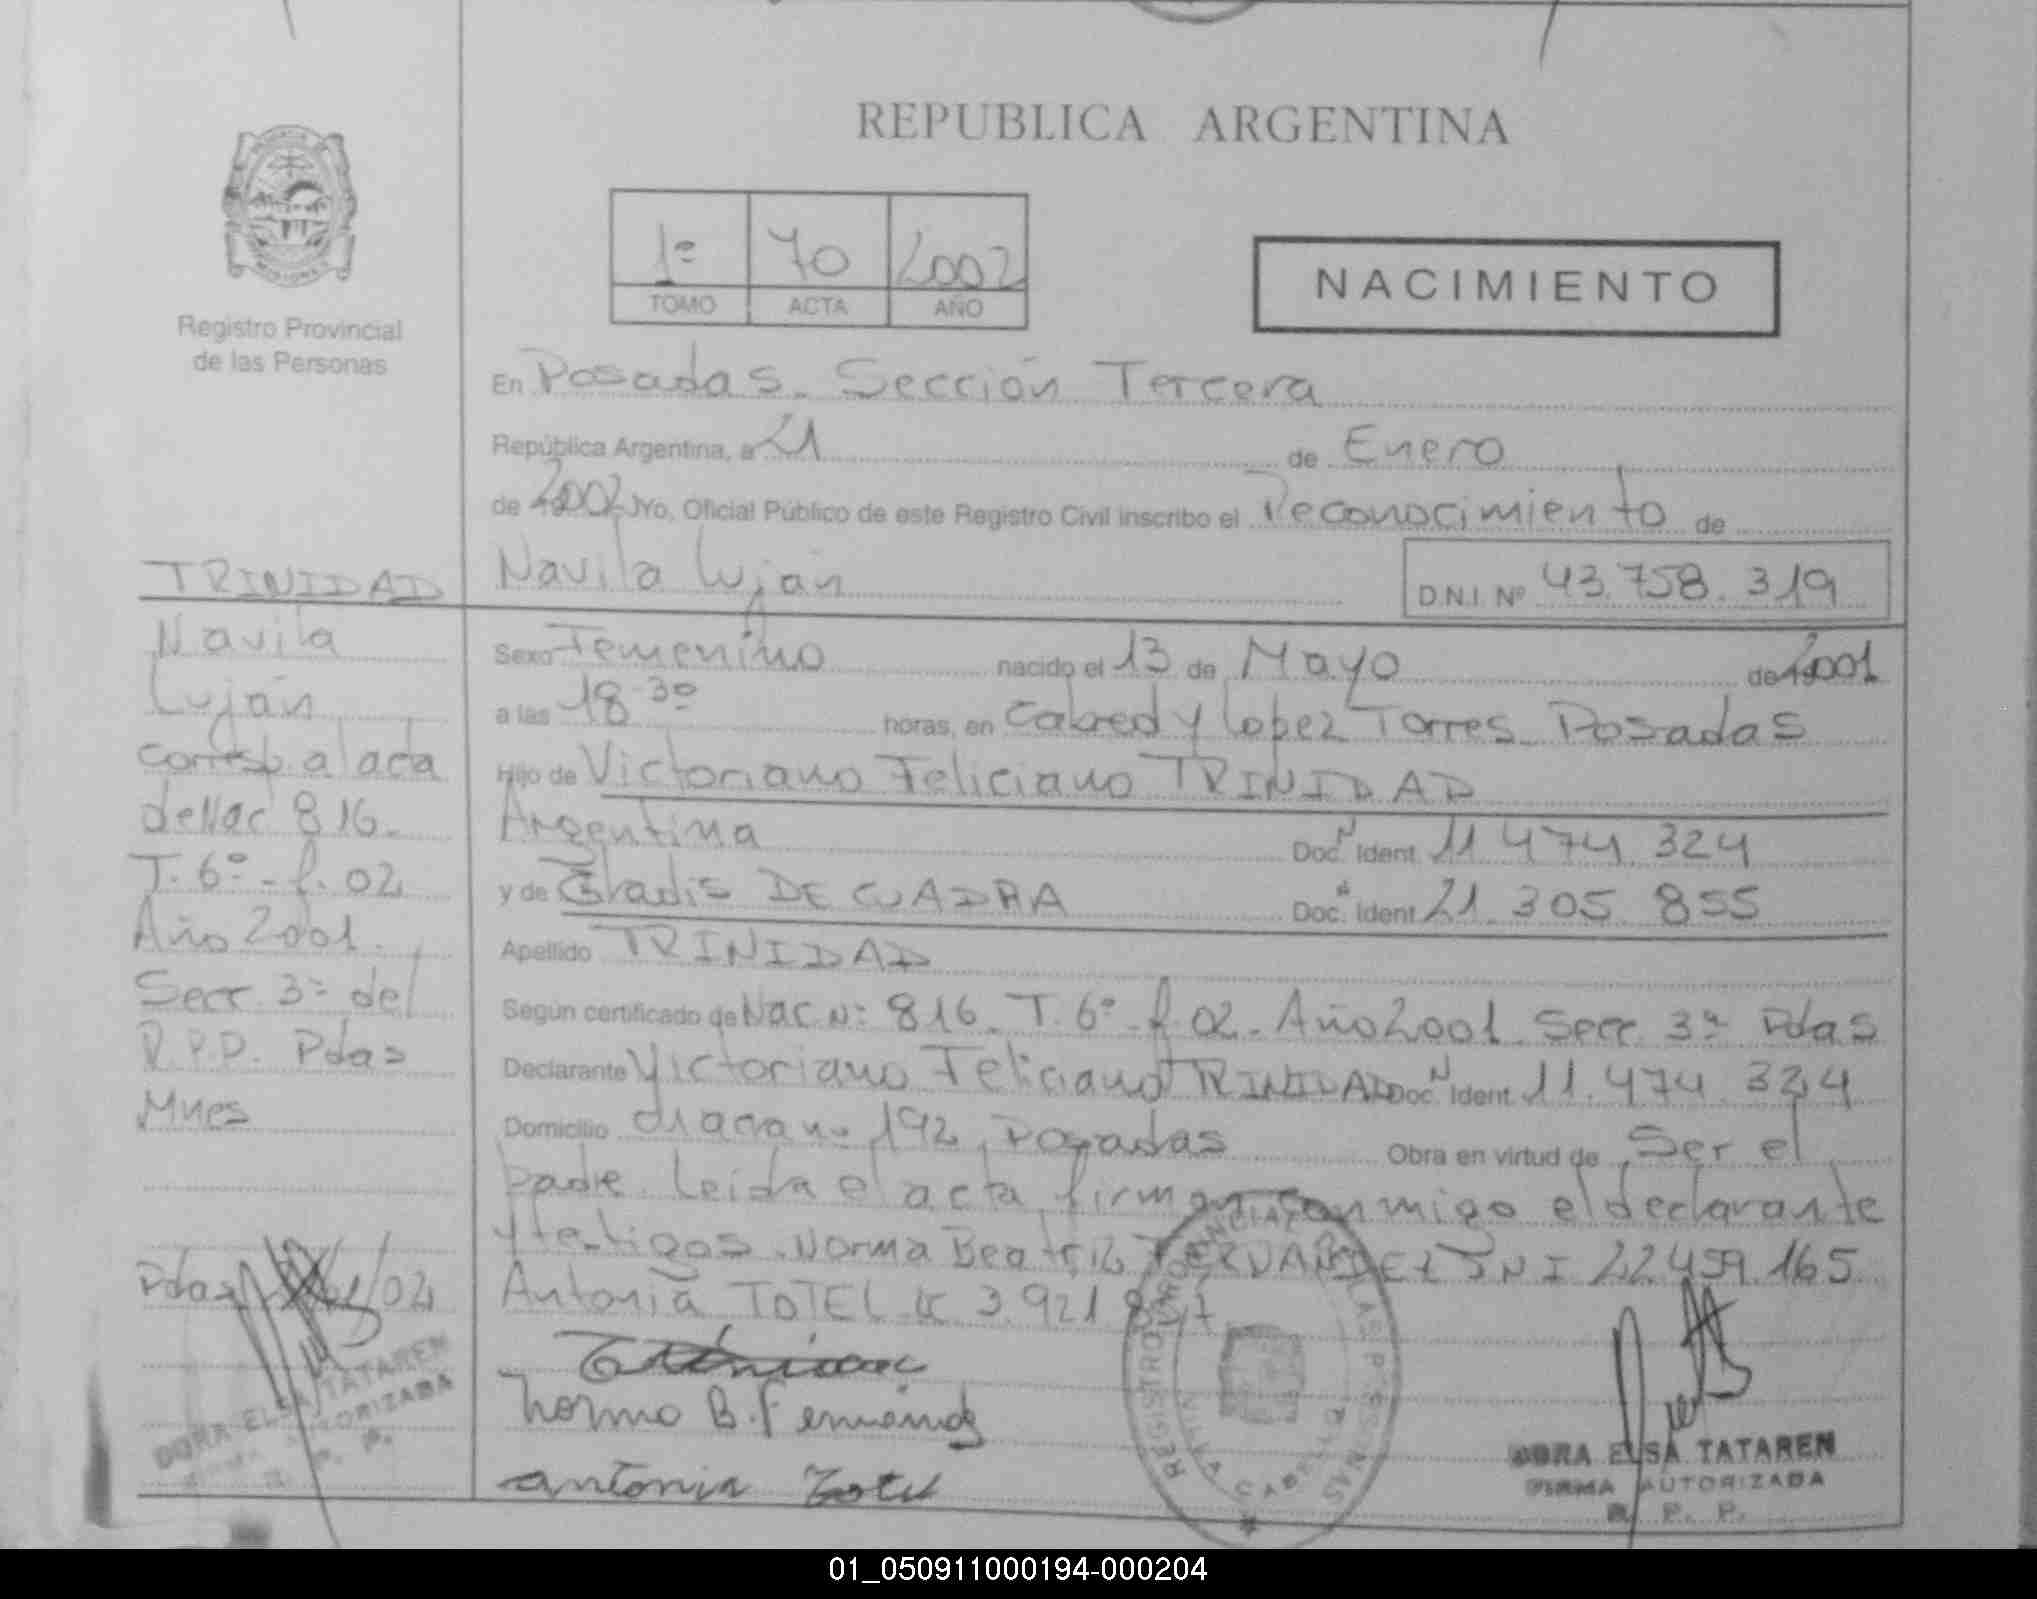 REPUBLICA ARGENTINA
1º 70 2002
TOMO ACTA AÑO
NACIMIENTO
Registro Provincial
de las Personas
En Posadas. Sección Tercera
República Argentina, a 21 de Enero
de 2002 Yo, Oficial Público de este Registro Civil inscribo el Reconocimiento de
Navila Luján
D.N.I. Nº 43.758.319
Sexo Femenino nacido el 13 de Mayo de 2001
a las 18 30 horas, en Cabred y Lopez Torres. Posadas
Hijo de Victoriano Feliciano TRINIDAD
Argentina Doc. N Ident. 11 474 324
y de Gladis DE CUADRA Doc. Ident. 21 305 855
Apellido TRINIDAD
Según certificado de Nac Nº: 816. T. 6º - f. 02. Año 2001. Secc. 3ª Pdas
Declarante Victoriano Feliciano TRINIDAD Doc. N Ident. 11.474 324
Domicilio 192. Posadas Obra en virtud de Ser el
padre. Leída el acta, firman conmigo el declarante
y testigos. Norma Beatriz FERNANDEZ DNI 22 459 165
Antonia TOTEL LC 3.921
Norma B. Fernández
Antonia
REGISTRO PROVINCIAL DE LAS PERSONAS
DORA ELSA TATAREN
FIRMA AUTORIZADA
R. P. P.
TRINIDAD
Navila
Luján
corresp. al acta
de Nac 816.
T. 6º - f. 02
Año 2001.
Secc. 3ª del
R.P.P. Pdas
Mnes
Pdas /02
DORA ELSA TATAREN
AUTORIZADA
R. P. P.
01_050911000194-000204